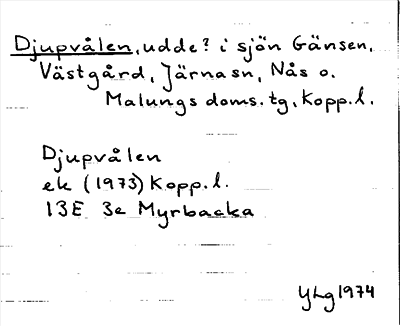 Djupvålen, udde? i sjön Gänsen,
Västgård, Järnasn, Nås o.
Malungs doms. tg, Kopp. l.
Djupvålen
ek (1973) Kopp. l.
13E 3e Myrbacka
YLg 1974